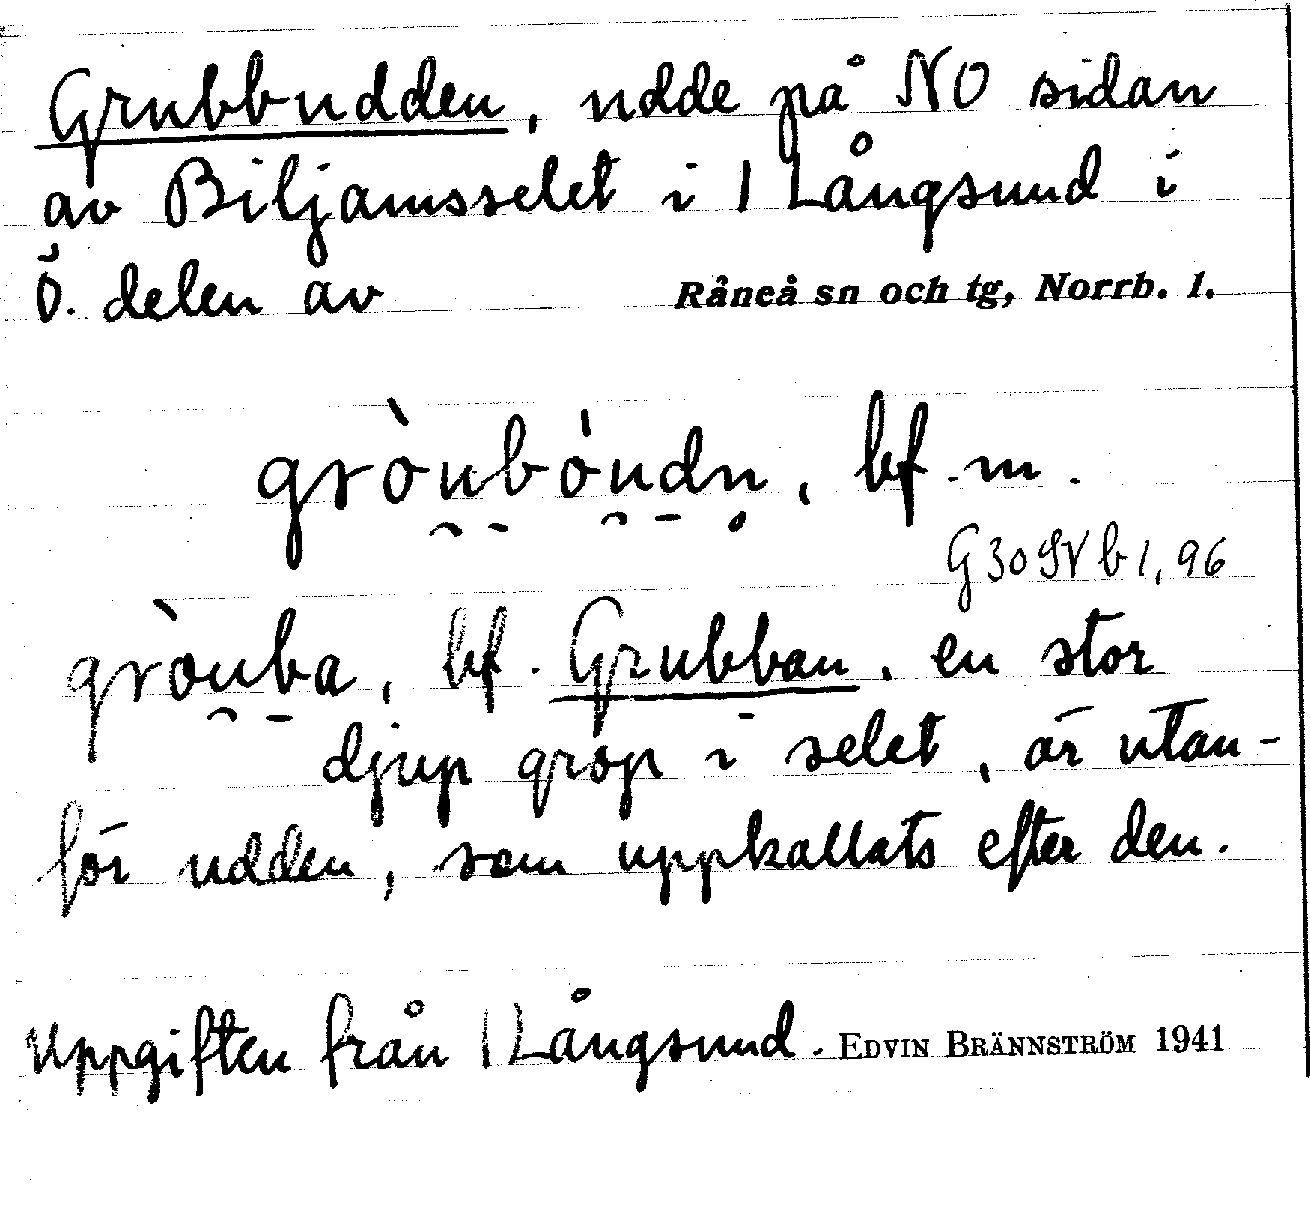 Grubbudden, udde på NO sidan
av Biljamsselet i 1 Långsund i
Ö. delen av Råneå sn och tg, Norrb. l.
gròu̯bóu̯dn̥, bf. m.
G30 SV b 1, 96
gròu̯ba, bf. Grubban, en stor
djup grop i selet, är utan-
för udden, som uppkallats efter den.
Uppgiften från 1 Långsund. EDVIN BRÄNNSTRÖM 1941